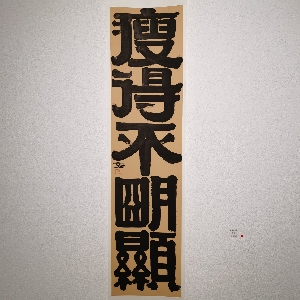 瘦得不明顯